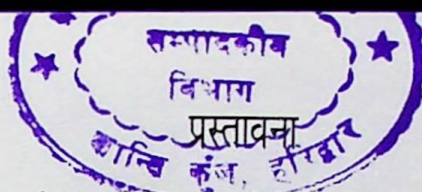 सम्पादकीय
विभाग
प्रस्तावना
शान्ति कुंज, हरिद्वार